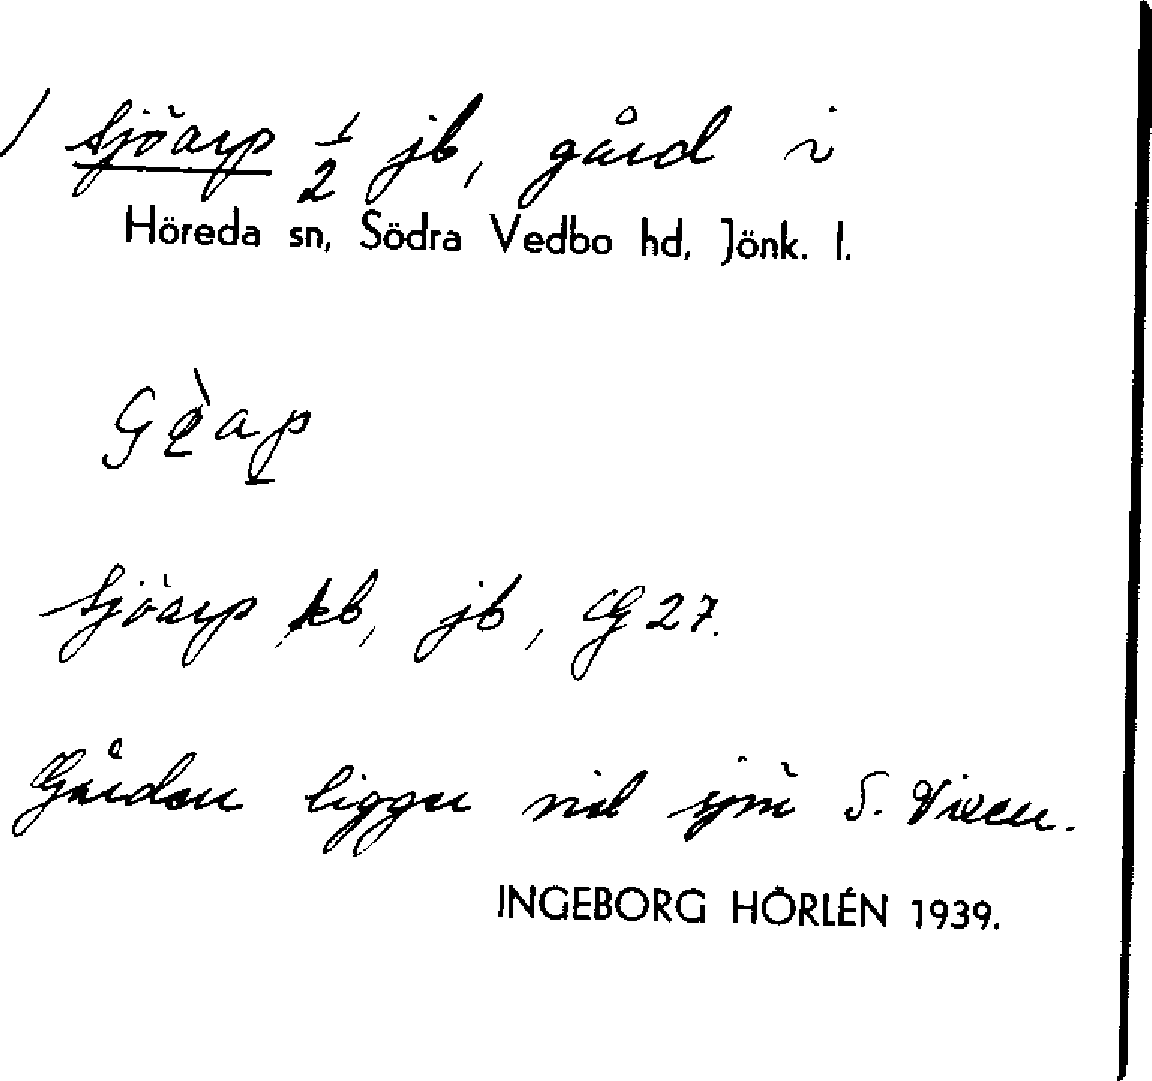 / Sjöarp 1/2 jb, gård i
Höreda sn, Södra Vedbo hd, Jönk. l.
Sjöarp kb, jb, G 27.
Gården ligger vid sjön S. Vixen.
INGEBORG HÖRLÉN 1939.